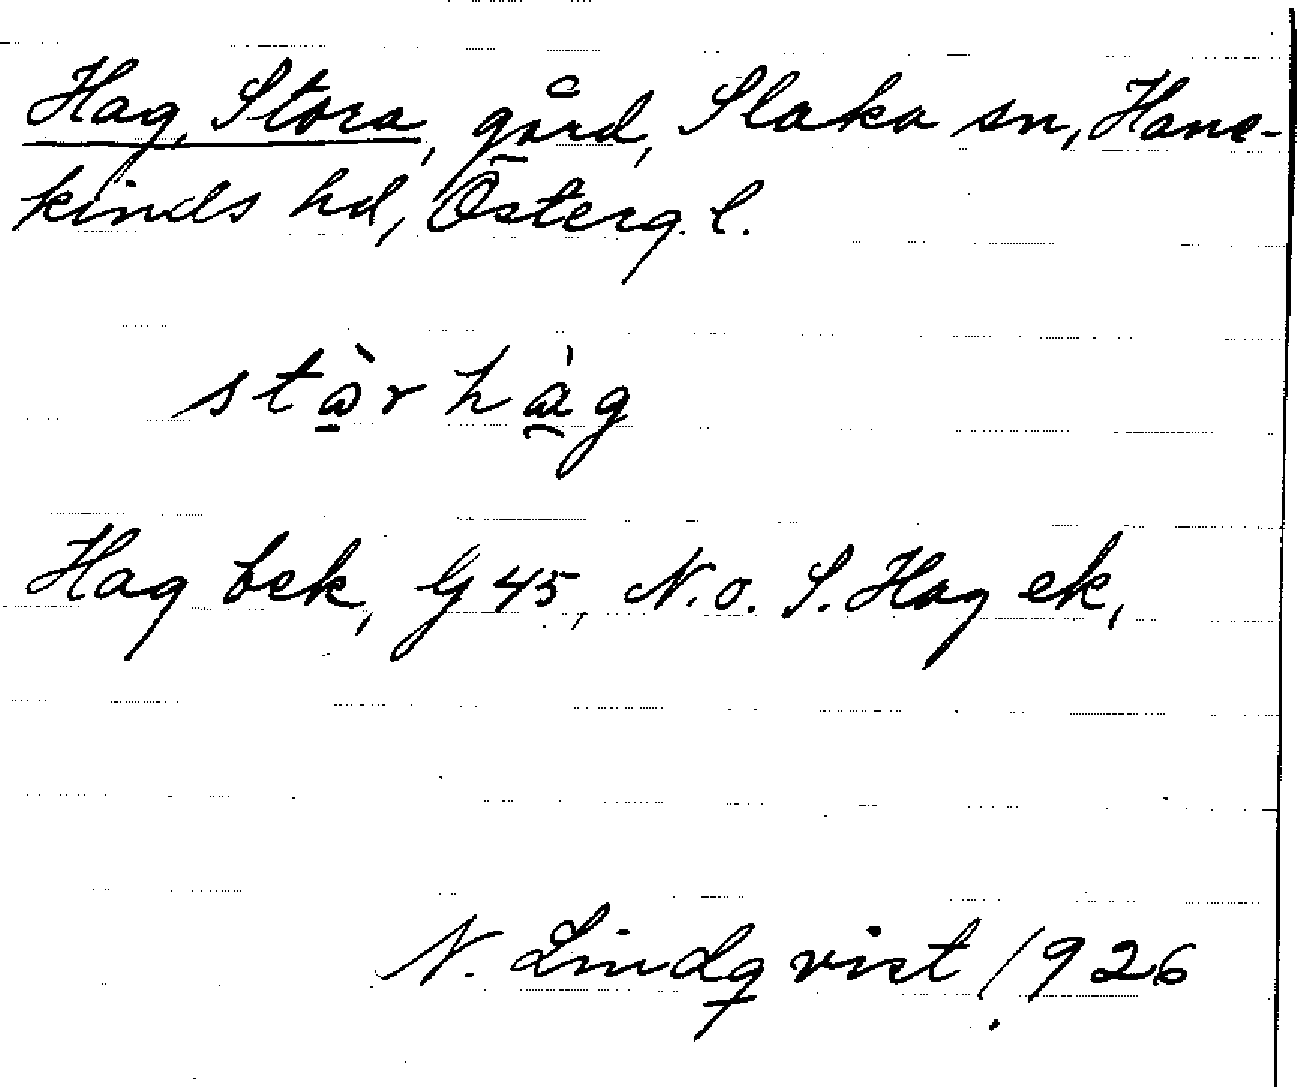 Hag, Stora, gård, Slaka sn, Hane-
kinds hd, Österg. l.
stå̀r hàg
Hag bek, G 45, N.o. S. Hag ek,
N. Lindqvist 1926